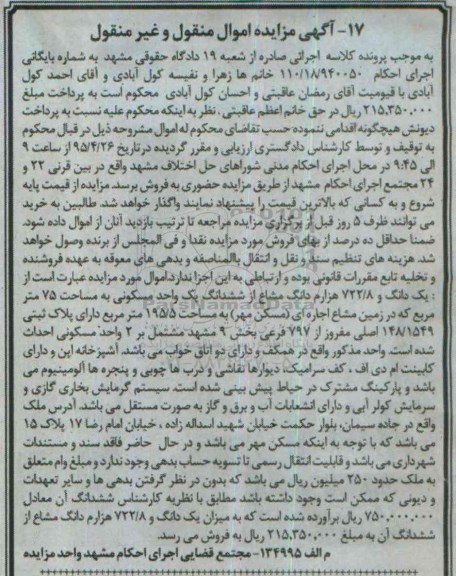 ۱۷- آگهی مزایده اموال منقول و غیر منقول
به موجب پرونده کلاسه اجرائی صادره از شعبه ۱۹ دادگاه حقوقی مشهد به شماره بایگانی
اجرای احکام ۱۱۰/۱۸/۹۴۰۰۵۰ خانم ها زهرا و نفیسه کول آبادی و آقای احمد کول
آبادی با قیومیت آقای رمضان عاقبتی و احسان کول آبادی محکوم است به پرداخت مبلغ
۲۱۵,۳۵۰,۰۰۰ ریال در حق خانم اعظم عاقبتی. نظر به اینکه محکوم علیه نسبت به پرداخت
دیونش هیچگونه اقدامی ننموده حسب تقاضای محکوم له اموال مشروحه ذیل در قبال محکوم
به توقیف و توسط کارشناس دادگستری ارزیابی و مقرر گردیده در تاریخ ۹۵/۴/۲۶ از ساعت ۹
الی ۹:۴۵ در محل اجرای احکام مدنی شوراهای حل اختلاف مشهد واقع در بین قرنی ۲۲ و
۲۴ مجتمع اجرای احکام مشهد از طریق مزایده حضوری به فروش برسد. مزایده از قیمت پایه
شروع و به کسانی که بالاترین قیمت را پیشنهاد نمایند واگذار خواهد شد. طالبین به خرید
می توانند ظرف ۵ روز قبل از برگزاری مزایده مراجعه تا ترتیب بازدید آنان از اموال داده شود.
ضمنا حداقل ده درصد از بهای فروش مورد مزایده نقدا و فی المجلس از برنده وصول خواهد
شد. هزینه های تنظیم سند و نقل و انتقال بالمناصفه و بدهی های معوقه به عهده فروشنده
و تخلیه تابع مقررات قانونی بوده و ارتباطی به این اجرا ندارد. اموال مورد مزایده عبارت است از
: یک دانگ و ۷۲۲/۸ هزارم دانگ مشاع از ششدانگ یک واحد مسکونی به مساحت ۷۵ متر
مربع که در زمین مشاع اجاره ای (مسکن مهر) به مساحت ۱۹۵/۵ متر مربع دارای پلاک ثبتی
۱۴۸/۱۵۴۹ اصلی مفروز از ۷۹۷ فرعی بخش ۹ مشهد مشتمل بر ۲ واحد مسکونی احداث
شده است. واحد مذکور واقع در همکف و دارای دو اتاق خواب می باشد. آشپزخانه اپن و دارای
کابینت ام دی اف، کف سرامیک، دیوارها نقاشی و درب ها چوبی و پنجره ها آلومینیوم می
باشد و پارکینگ مشترک در حیاط پیش بینی شده است. سیستم گرمایش بخاری گازی و
سرمایش کولر آبی و دارای انشعابات آب و برق و گاز به صورت مستقل می باشد. آدرس ملک
واقع در جاده سیمان، بلوار حکمت خیابان شهید اسداله زاده، خیابان امام رضا ۱۷ پلاک ۱۵
می باشد که با توجه به اینکه مسکن مهر می باشد و در حال حاضر فاقد سند و مستندات
شهرداری می باشد و قابلیت انتقال رسمی تا تسویه حساب بدهی وجود ندارد و مبلغ وام متعلق
به ملک حدود ۲۵۰ میلیون ریال می باشد که بدون در نظر گرفتن بدهی ها و سایر تعهدات
و دیونی که ممکن است وجود داشته باشد مطابق با نظریه کارشناس ششدانگ آن معادل
۷۵۰,۰۰۰,۰۰۰ ریال برآورده شده است که به میزان یک دانگ و ۷۲۲/۸ هزارم دانگ مشاع از
ششدانگ آن به مبلغ ۲۱۵,۳۵۰,۰۰۰ ریال به فروش می رسد.
م الف ۱۳۴۹۹۵- مجتمع قضایی اجرای احکام مشهد واحد مزایده